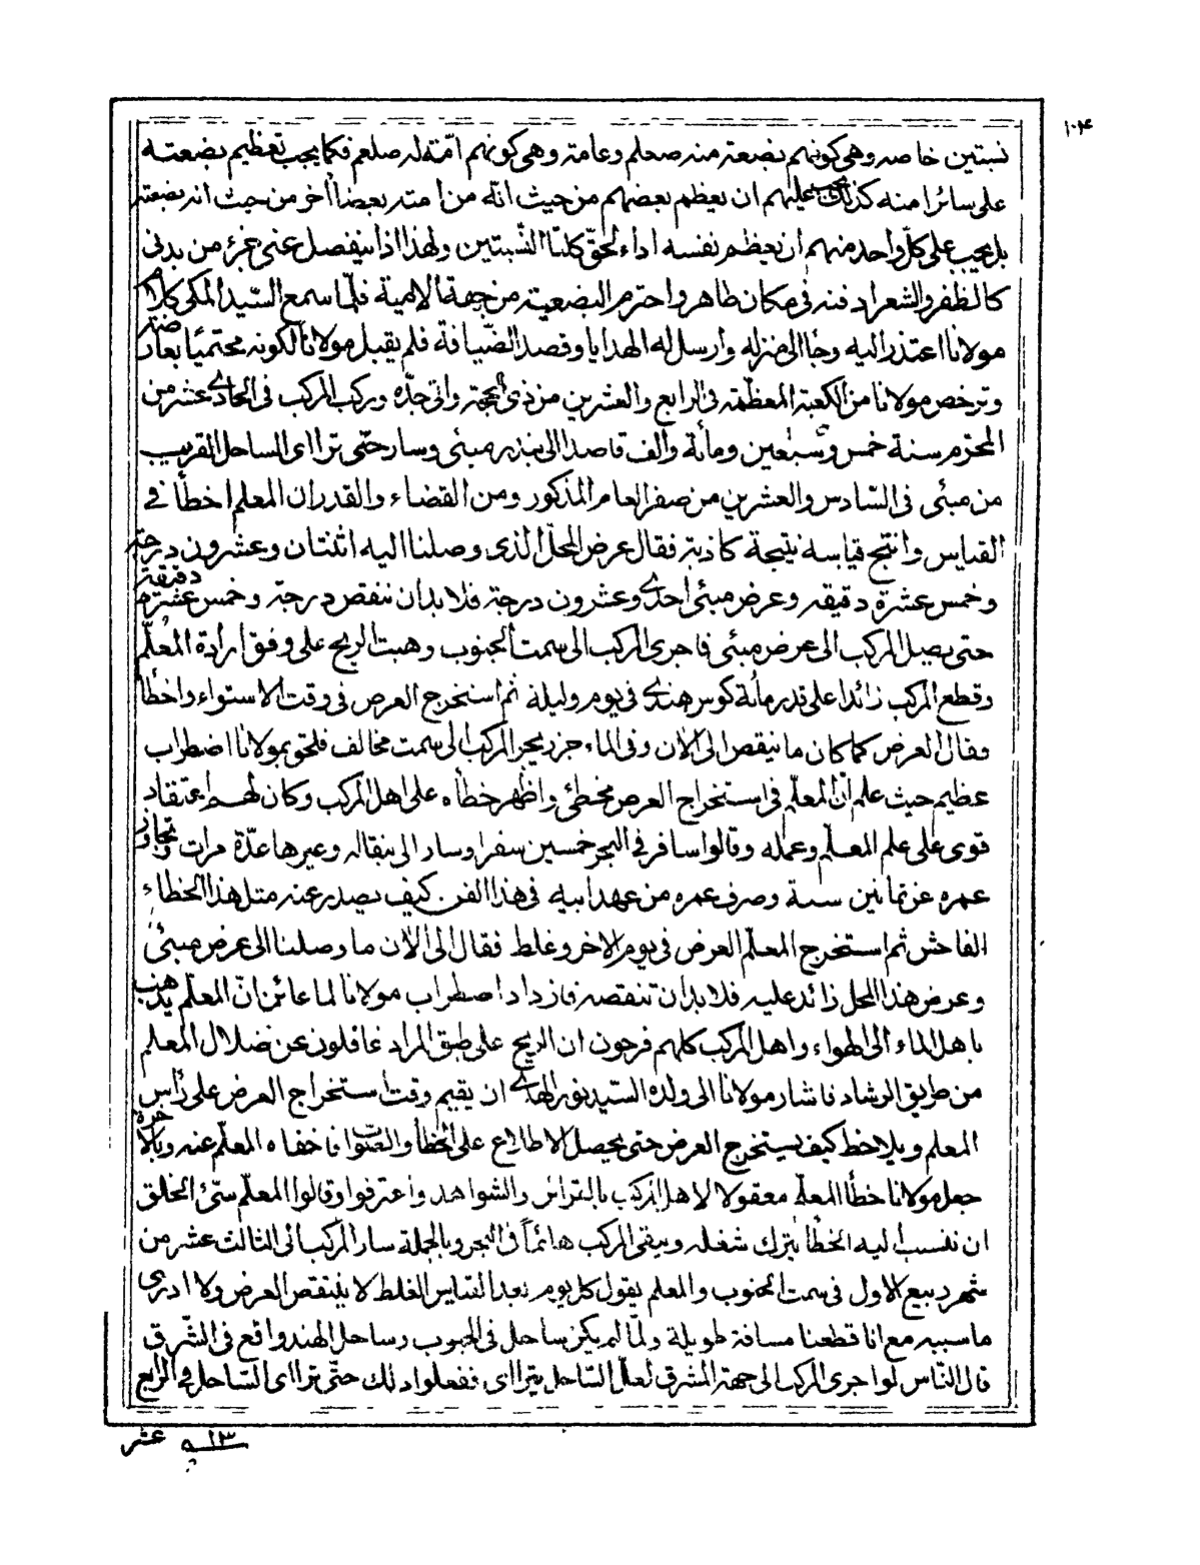 ١٠٤
نسبتين خاصه وهى كونهم بضعة منه صعلم وعامة وهى كونهم امّة له صلعم فكما يجب تعظيم بضعته
على سائر امته كذلك يجب عليهم ان يعظم بعضهم من حيث انّه من امته بعضا آخر من حيث انه بضعته
بل يجب على كلّ واحد منهم ان يعظم نفسه اداء لحقّ كلتا النّسبتين ولهذا اذا ينفصل عنى جزء من بدنى
كالظفر والشعر ادفنه فى مكان طاهر واحترم البضعية من جهة الامية فلمّا سمع السّيد المكى كلام
مولانا اعتذر اليه وجا الى منزله وارسل له الهدايا وقصد الضّيافة فلم يقبل مولانا لكونه محتميًا بعارضته
وترخص مولانا من الكعبة المعظمة فى الرابع والعشرين من ذى الحجة واتى جدّه وركب المركب فى الحادى عشر من
المحرّم سنة خمس وسبعين ومائة والف قاصدا الى بندر مبئى وسار حتّى تراى الساحل القريب
من مبئى فى السّادس والعشرين من صفر العام المذكور ومن القضاء والقدر ان المعلم اخطأ فى
القياس وانتج قياسه نتيجة كاذبة فقال عرض المحلّ الذى وصلنا اليه اثنتان وعشرون درجة
وخمس عشرة دقيقه وعرض مبئى احدى وعشرون درجة فلا بد ان ننقص درجة وخمس عشرة دقيقة
حتى يصل المركب الى عرض مبئى فاجرى المركب الى سمت الجنوب وهبت الريح على وفق ارادة المعلّم
وقطع المركب زائدا على قدر مائة كوس هندى فى يوم وليلة ثم استخرج العرض فى وقت الاستواء واخطأ
فقال العرض كما كان ما ينقص الى الآن وفى الماء جزر يجر المركب الى سمت مخالف فلحق بمولانا اضطراب
عظيم حيث علم انّ المعلّم فى استخراج العرض مخطئ واظهر خطأه على اهل المركب وكان لهم اعتقاد
قوى على علم المعلّم وعمله وقالوا سافر فى البحر خمسين سفرا وسار الى بنقاله وغيرها عدّة مرات وتجاوز
عمره عن ثمانين سنة وصرف عمره من عهد ابيه فى هذا الفن كيف يصدر عنه مثل هذا الخطاء
الفاحش ثم استخرج المعلّم العرض فى يوم الاخر وغلط فقال الى الآن ما وصلنا الى عرض مبئى
وعرض هذا المحل زائد عليه فلا بد ان تنقصه فازداد اضطراب مولانا لما عائن انّ المعلّم يذهب
باهل الماء الى الهواء واهل المركب كلهم فرحون ان الريح على طبق المراد غافلون عن ضلال المعلم
من طريق الرشاد فاشار مولانا الى ولده السّيد نور الهدى ان يقيم وقت استخراج العرض على رأس
المعلم ويلاحظ كيف يستخرج العرض حتى يحصل الاطلاع على الخطأ والصّواب فاخفاه المعلّم عنه وبالاخرة
جعل مولانا خطأ المعلّم معقولا لاهل المركب بالقرائن والشواهد واعترفوا وقالوا المعلّم سيّئ الخلق
ان ننسب اليه الخطأ يترك شغله ويبقى المركب هائماً فى البحر وبالجملة سار المركب الى الثالث عشر من
شهر ربيع الاول فى سمت الجنوب والمعلم يقول كل يوم بعد القياس الغلط لا ينتقص العرض ولا ادرى
ما سببه مع انا قطعنا مسافة طويلة ولمّا لم يكن ساحل فى الجنوب وساحل الهند واقع فى الشّرق
قال النّاس لو اجرى المركب الى جهة المشرق لعلّ السّاحل يتراى ففعلوا ذلك حتّى تراى السّاحل فى الرابع
عشر
١٣